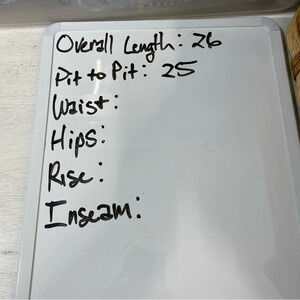 Overall Length: 26
Pit to Pit: 25
Waist:
Hips:
Rise:
Inseam: